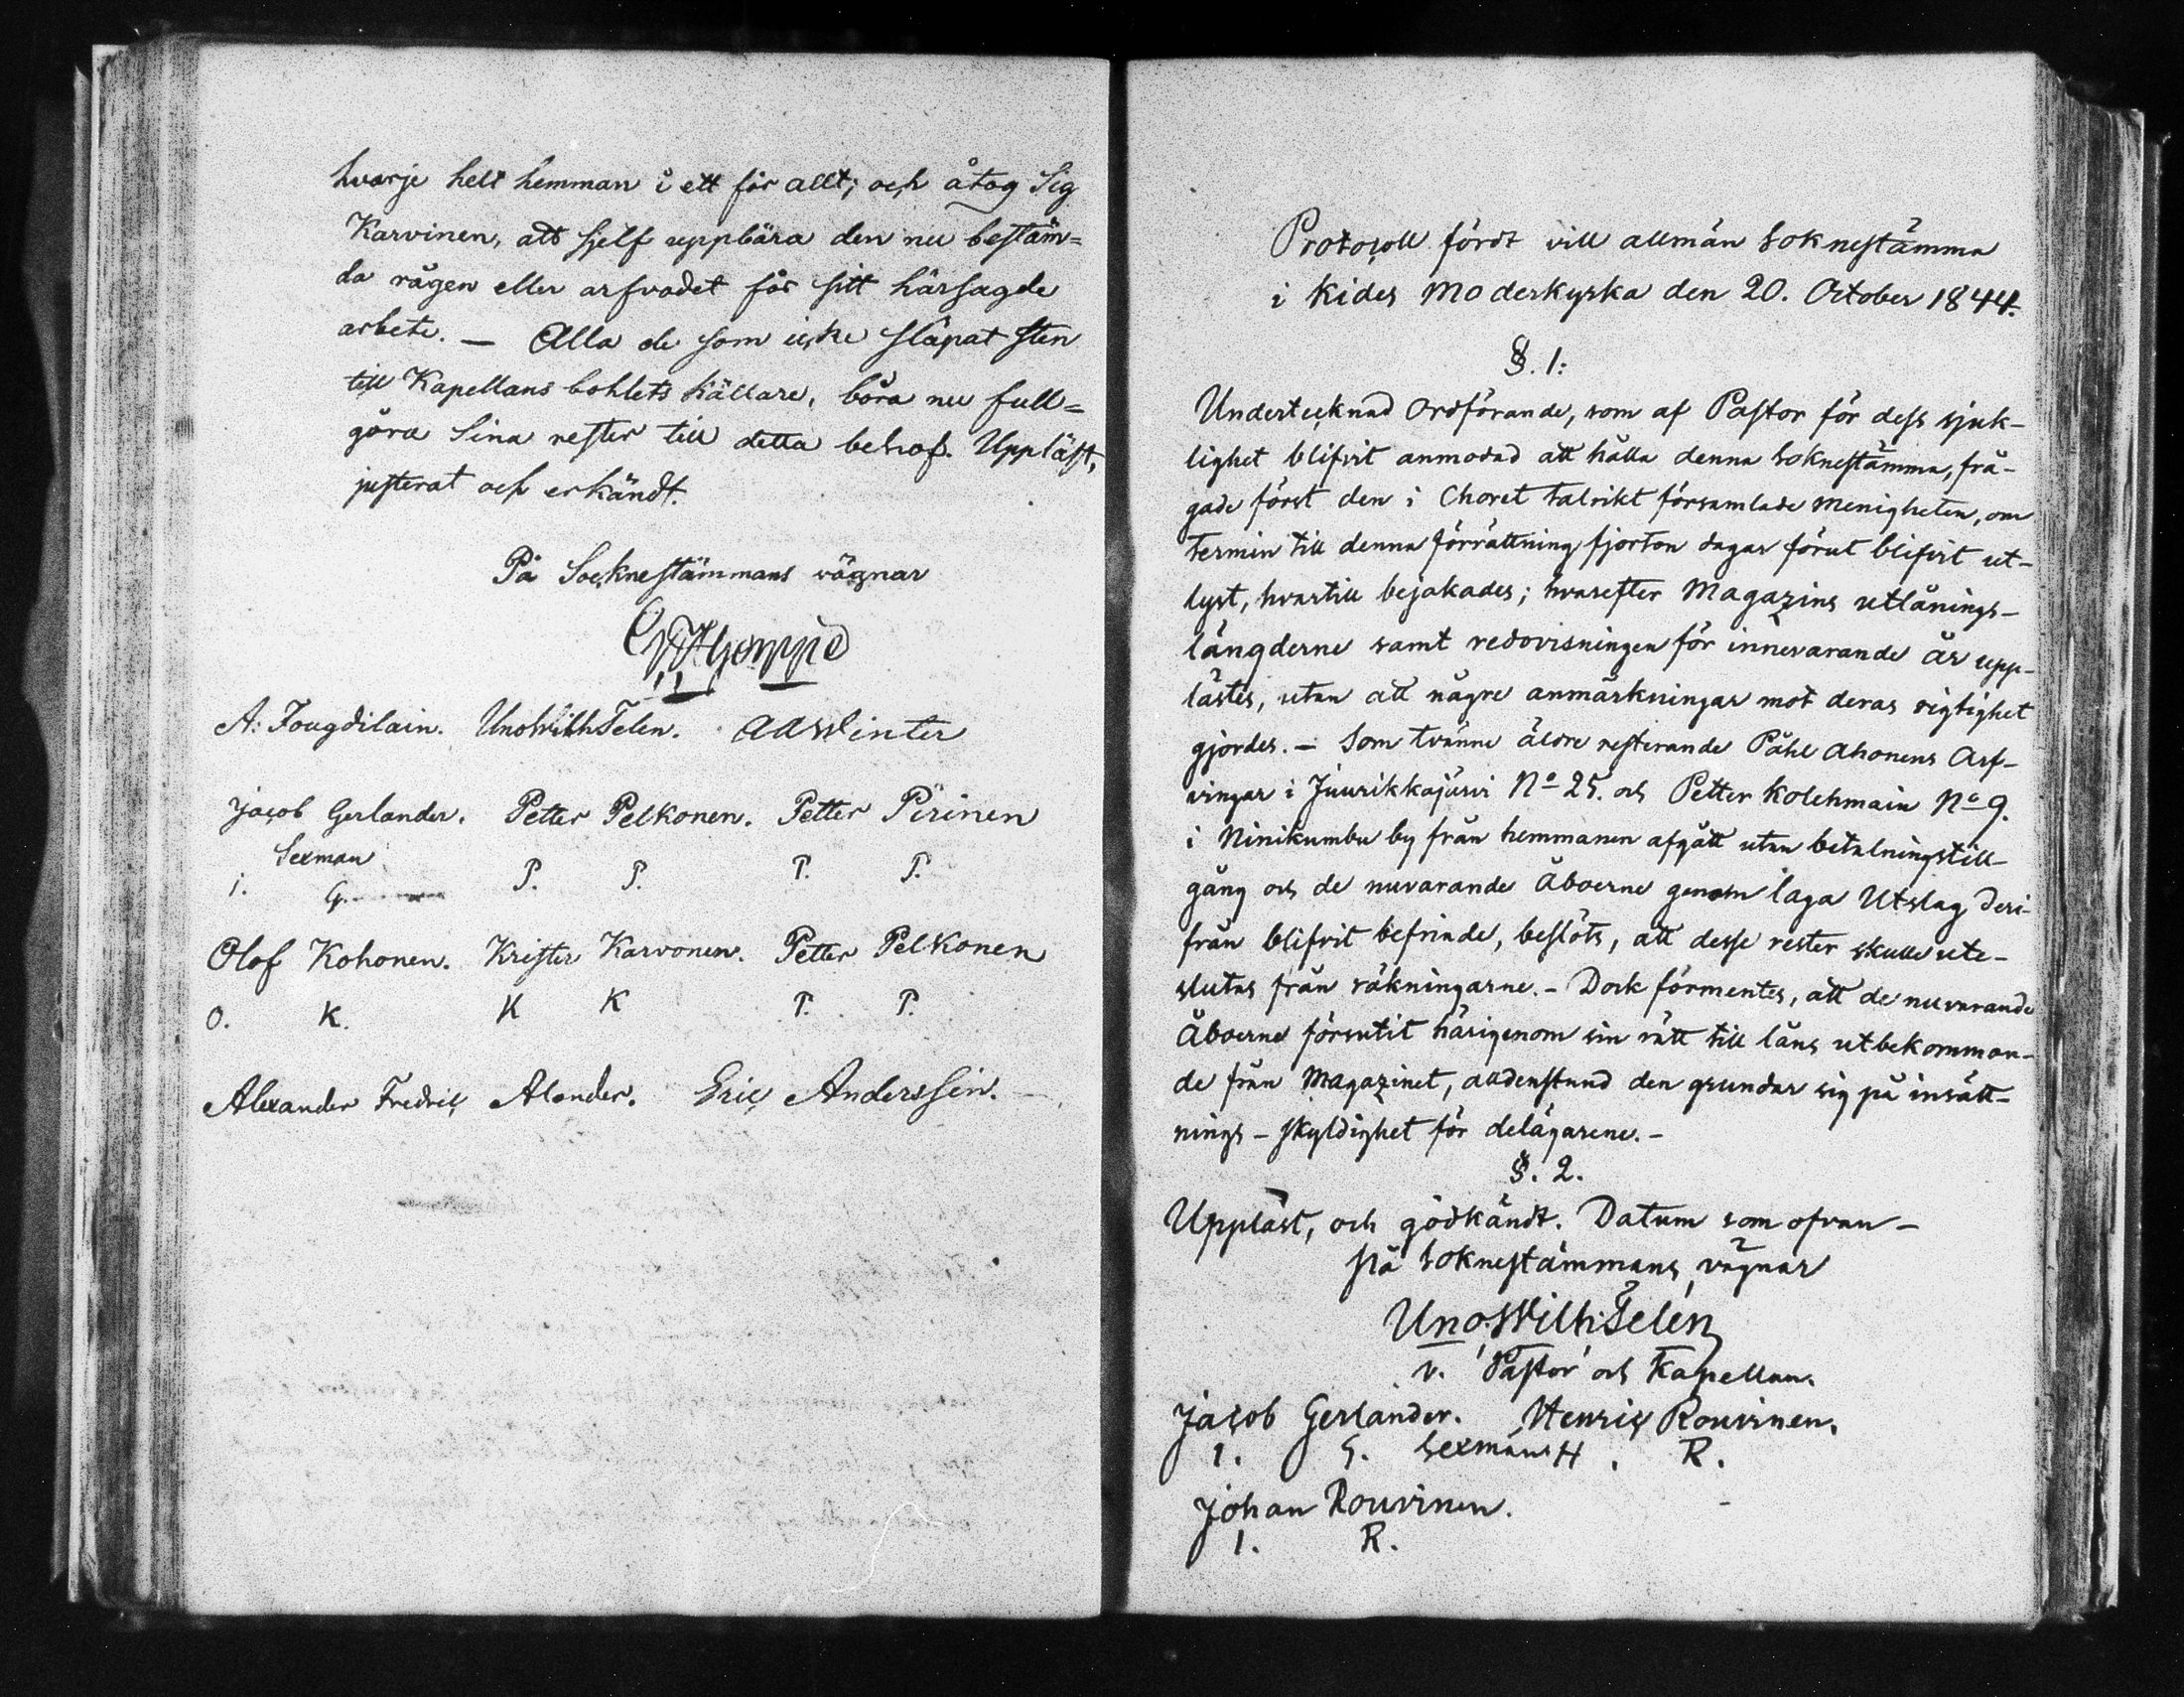 hvarje helt hemman i ett för allt; och åtog Sig
Karvinen, att sjelf uppbära den nu bestäm=
da rågen eller arfvodet för sitt härsagde
arbete. — Alla de som icke släpat sten
till Kapellans bohlets källare, böra nu full=
göra Sina rester till detta behof. Uppläst,
justerat och erkändt.
På Socknestämmans vägnar
A: Fougdilain. Uno Wilh Telen. AA Winter
Jacob Gerlander. Petter Pelkonen. Petter Pirinen
Sexman
i. G. P. P. P. P.
Olof Kohonen. Krister Karvonen. Petter Pelkonen
O. K. K K P. P.
Alexander Fredric Alander. Eric Anderssin.
Protocoll fördt vill allmän Soknestämma
i Kides Moderkyrka den 20. October 1844.
§. 1:
Undertecknad Ordförande, som af Pastor för dess sjuk-
lighet blifvit anmodad att hålla denna Soknestämma, frå-
gade först den i Choret talrikt församlade Menigheten, om
termin till denna förrättning fjorton dagar förut blifvit ut-
lyst, hvartill bejakades; hvarefter Magazins utlånings-
längderne samt redovisningen för innevarande år upp-
lästes, utan att någre anmärkningar mot deras rigtighet
gjordes. – Som tvänne äldre resterande Påhl Ahonens Arf-
vingar i Juurikkajärvi No 25. och Petter Kolehmain No 9.
i Niinikumbu by från hemmanen afgått utan betalningstill-
gång och de nuvarande Åboerne genom laga Utslag deri-
från blifvit befriade, beslöts, att desse rester skulle ute-
slutas från räkningarne. – Dock förmentes, att de nuvarande
Åboerne försutit härigenom sin rätt till låns utbekomman-
de från Magazinet, alldenstund den grundar sig på insätt-
nings – skyldighet för delägarene. –
§. 2.
Uppläst, och godkändt. Datum som ofvan –
på Soknestämmans vägnar
Uno Wilh: Telén
v. Pastor och Kapellan.
Jacob Gerlander. Henric Rouvinen.
I. G. Sexman H. R.
Johan Rouvinen.
I. R.